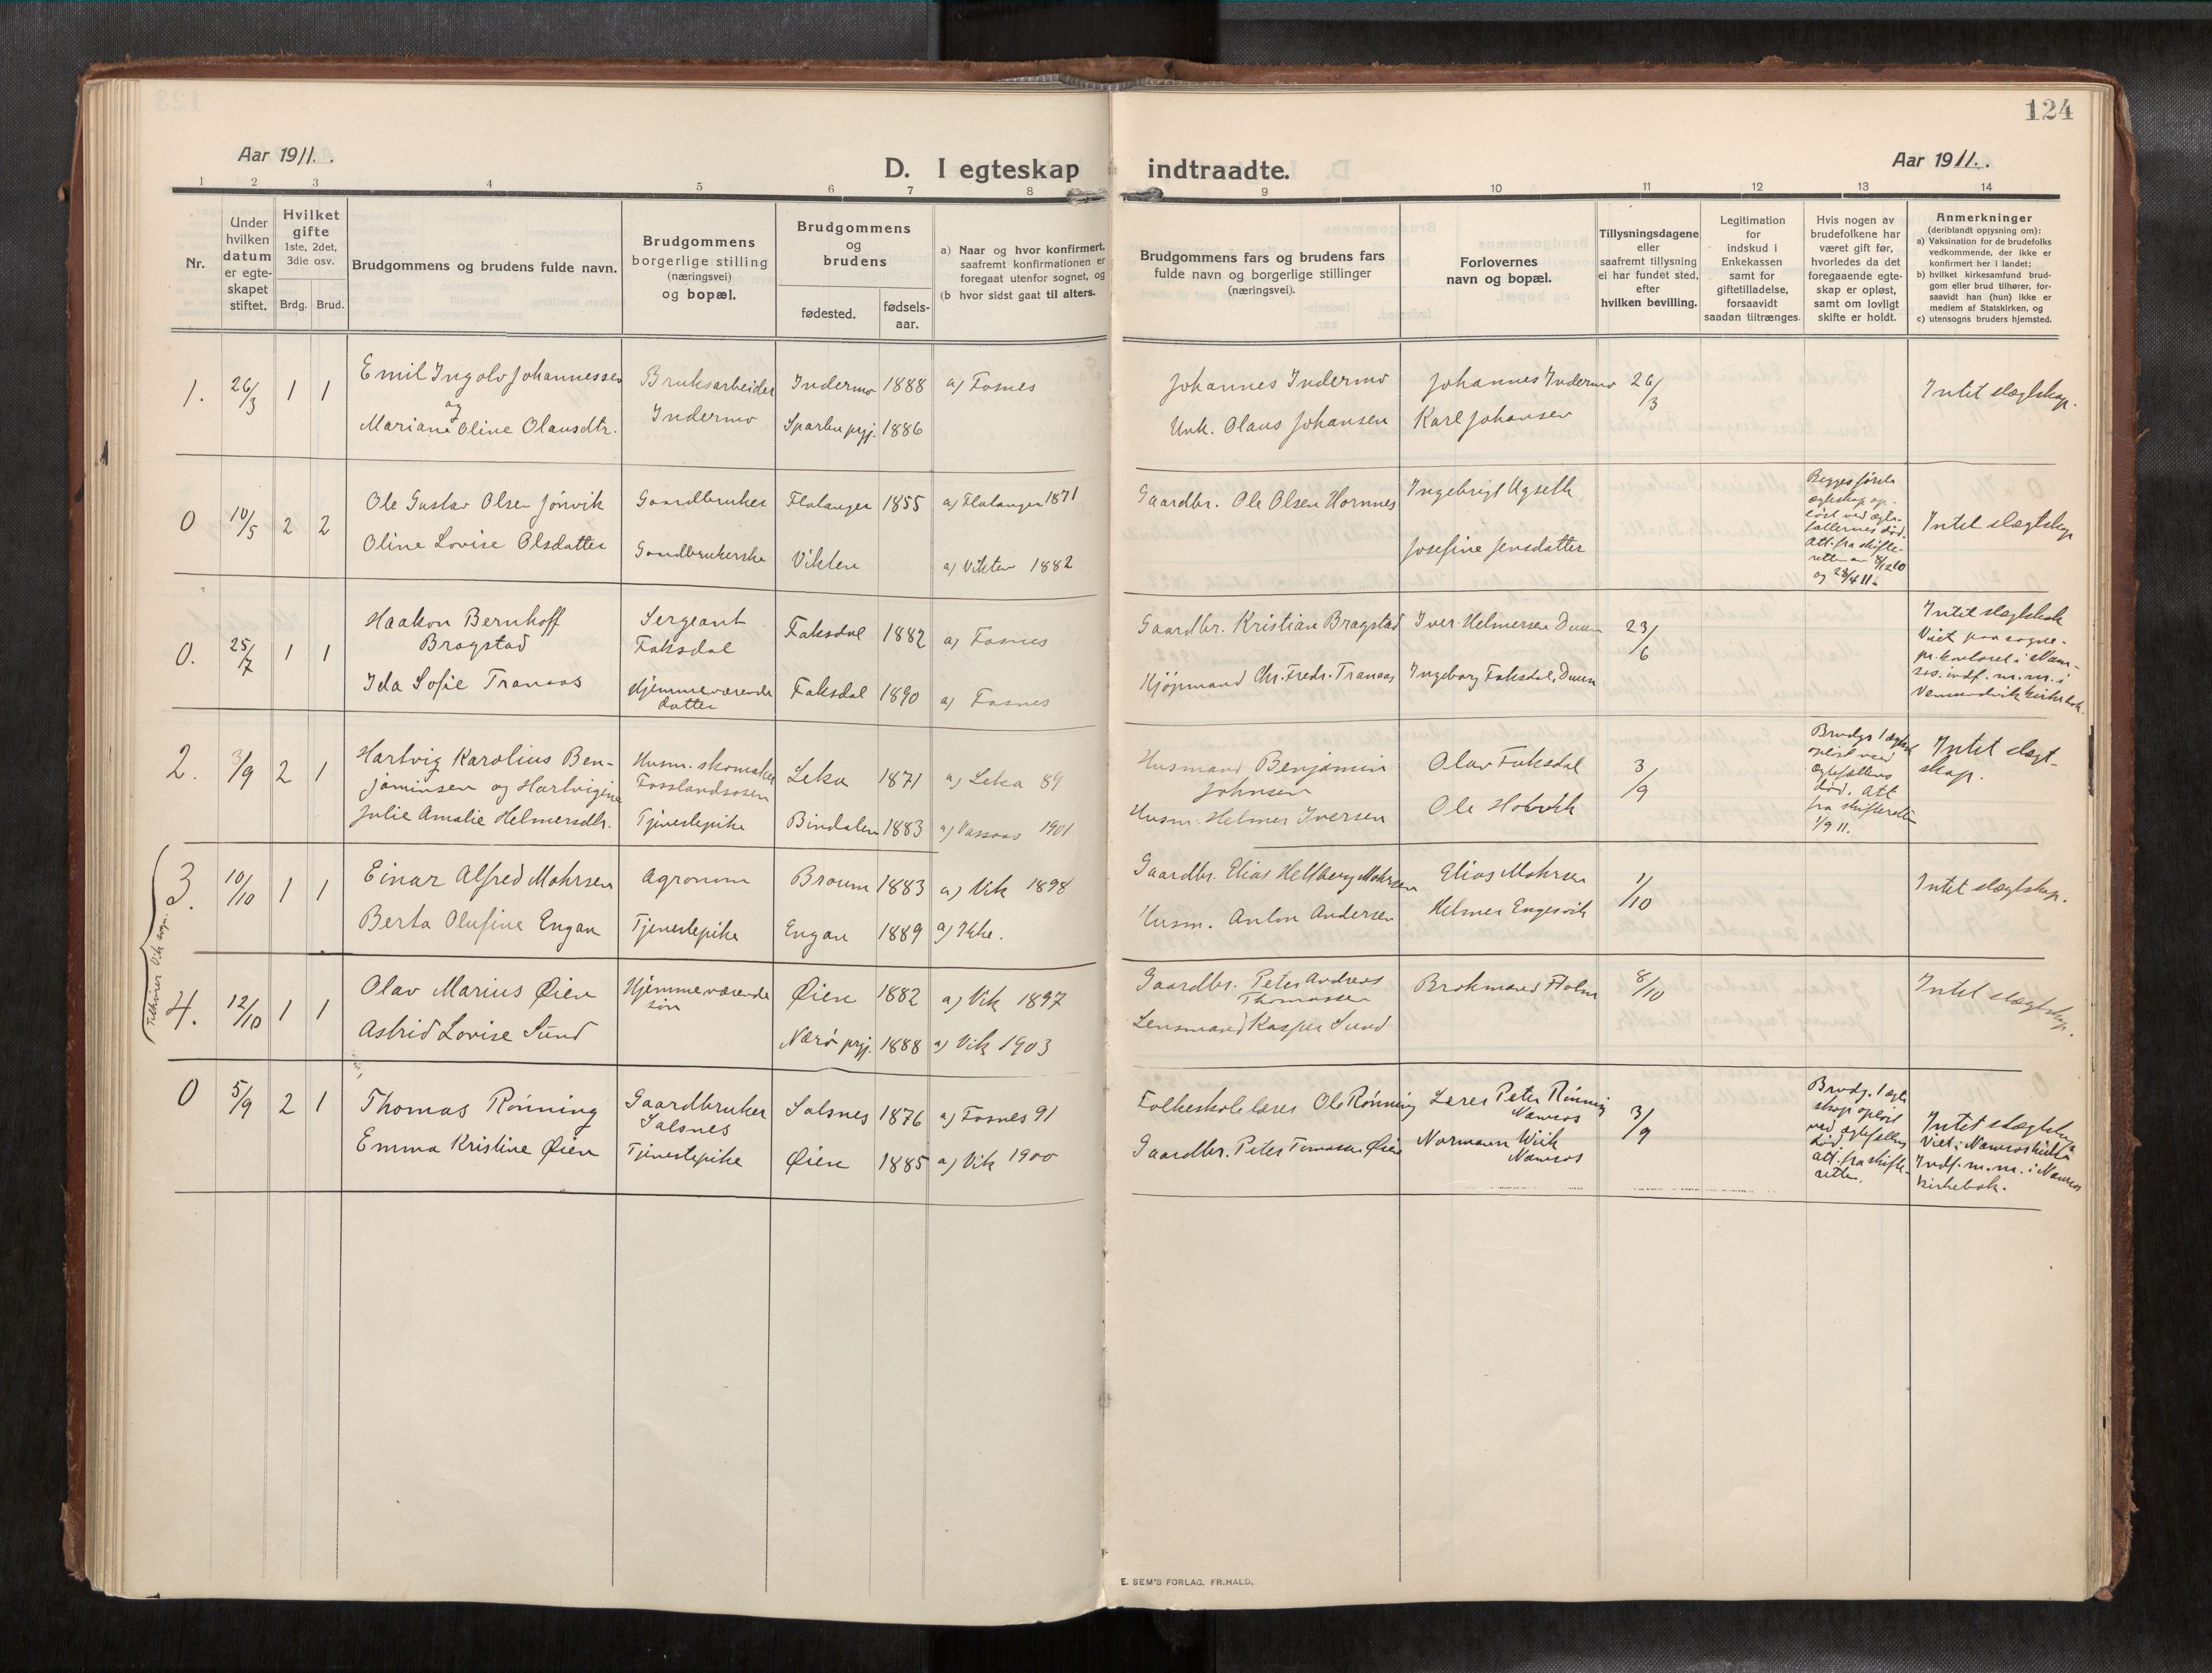 124
Aar 1911.
D. I egteskap indtraadte.
Aar 1911.
1 2 3 4 5 6 7 8 9 10 11 12 13 14
Nr.
Under hvilken datum er egteskapet stiftet.
Hvilket gifte
1ste, 2det, 3die osv.
Brdg. Brud.
Brudgommens og brudens fulde navn.
Brudgommens borgerlige stilling (næringsvei) og bopæl.
Brudgommens og brudens
fødested.
fødsels-aar.
a) Naar og hvor konfirmert, saafremt konfirmationen er foregaat utenfor sognet, og
(b hvor sidst gaat til alters.
Brudgommens fars og brudens fars fulde navn og borgerlige stillinger (næringsvei).
Forlovernes navn og bopæl.
Tillysningsdagene eller saafremt tillysning ei har fundet sted, efter hvilken bevilling.
Legitimation for indskud i Enkekassen samt for giftetilladelse, forsaavidt saadan tiltrænges.
Hvis nogen av brudefolkene har været gift før, hvorledes da det foregaaende egteskap er opløst, samt om lovligt skifte er holdt.
Anmerkninger
(deriblandt opjysning om):
a) Vaksination for de brudefolks vedkommende, der ikke er konfirmert her i landet;
b) hvilket kirkesamfund brudgom eller brud tilhører, forsaavidt han (hun) ikke er medlem af Statskirken, og
c) utensogns bruders hjemsted.
1. 26/3 1 1 Emil Ingolv Johannessen Bruksarbeider Indermo 1888 a) Fosnes Johannes Indermo Johannes Indermo 26/3 Intet slægtskap.
og
Mariane Oline Olausdtr. Indermo Sparbu prgj. 1886 Unk. Olaus Johansen Karl Johansen
0 10/5 2 2 Ole Gustav Olsen Jönvik Gaardbruker Flatanger 1855 a) Flatanger 1871 Gaardbr. Ole Olsen Hornnes Ingebrigt Agseth Intet slægtskap
Oline Lovise Olsdatter Gaardbrukerske Vikten a) Vikten 1882 Josefine Jensdatter
Begges første
egteskap op-
løst ved egte-
fællernes död.
Att. fra skifte-
retten av 8/12 10
og 28/4 11.
0. 25/7 1 1 Haakon Bernhoff Sergeant Faksdal 1882 a) Fosnes Gaardbr. Kristian Bragstad Iver Helmersen Duun 23/6 Intet slægtskab
Bragstad Faksdal
Ida Sofie Tranaas Hjemmeværende datter Faksdal 1890 a) Fosnes Kjöpmand Chr. Fredr. Tranaas Ingeborg Faksdal, Duun
Viet paa sogne-
pr. kontoret i Nam-
sos. indf. m.m. i
Vemundvik kirkebok.
2. 3/9 2 1 Hartvig Karolius Ben- Husm. skomaker Leka 1871 a) Leka 89 Husmand Benjamin Olav Faksdal 3/9 Intet slægt-
jaminsen og Hartvigine Fosslandsosen Johnsen skap.
Julie Amalie Helmersdtr. Tjenestepike Bindalen 1883 a) Vassaas 1901 Husm. Helmer Iversen Ole Hovik
Brudgs 1 egtesk
opløst ved
egtefællens
död. Att
fra skifteretten
1/9 11.
Tilhører Vik sogn.
3. 10/10 1 1 Einar Alfred Mohrsen Agronom Broum 1883 a) Vik 1898 Gaardbr. Elias Hellberg Mohrsen Elias Mohrsen 1/10 Intet slægtskap.
Berta Olufine Engan Tjenestepike Engan 1889 a) Ikke. Husm. Anton Andersen Helmer Engesvik
4. 12/10 1 1 Olav Marius Øien Hjemmeværende søn Øien 1882 a) Vik 1897 Gaardbr. Peter Andreas Thomassen Brokmand Holm 8/10 Intet slægtskap.
Astrid Lovise Sund Nærö prgj. 1888 a) Vik 1903 Lensmand Kasper Sund
0 5/9 2 1 Thomas Rönning Gaardbruker Salsnes Salsnes 1876 a) Fosnes 91 Folkeskolelærer Ole Rønning Lærer Peter Rönning Namsos 3/9 Intet slægtskap
Emma Kristine Øien Tjenestepike Øien 1885 a) Vik 1900 Gaardbr. Peter Tomassen Øien Normann Wiik Namsos
Brudg. 1 egte
skap opløst
ved egtefælles
död
att. fra skifte-
retten.
Viet i Namsos kirke
Indf. m.m. i Namsos
kirkebok.
E. SEM'S FORLAG, FR.HALD.